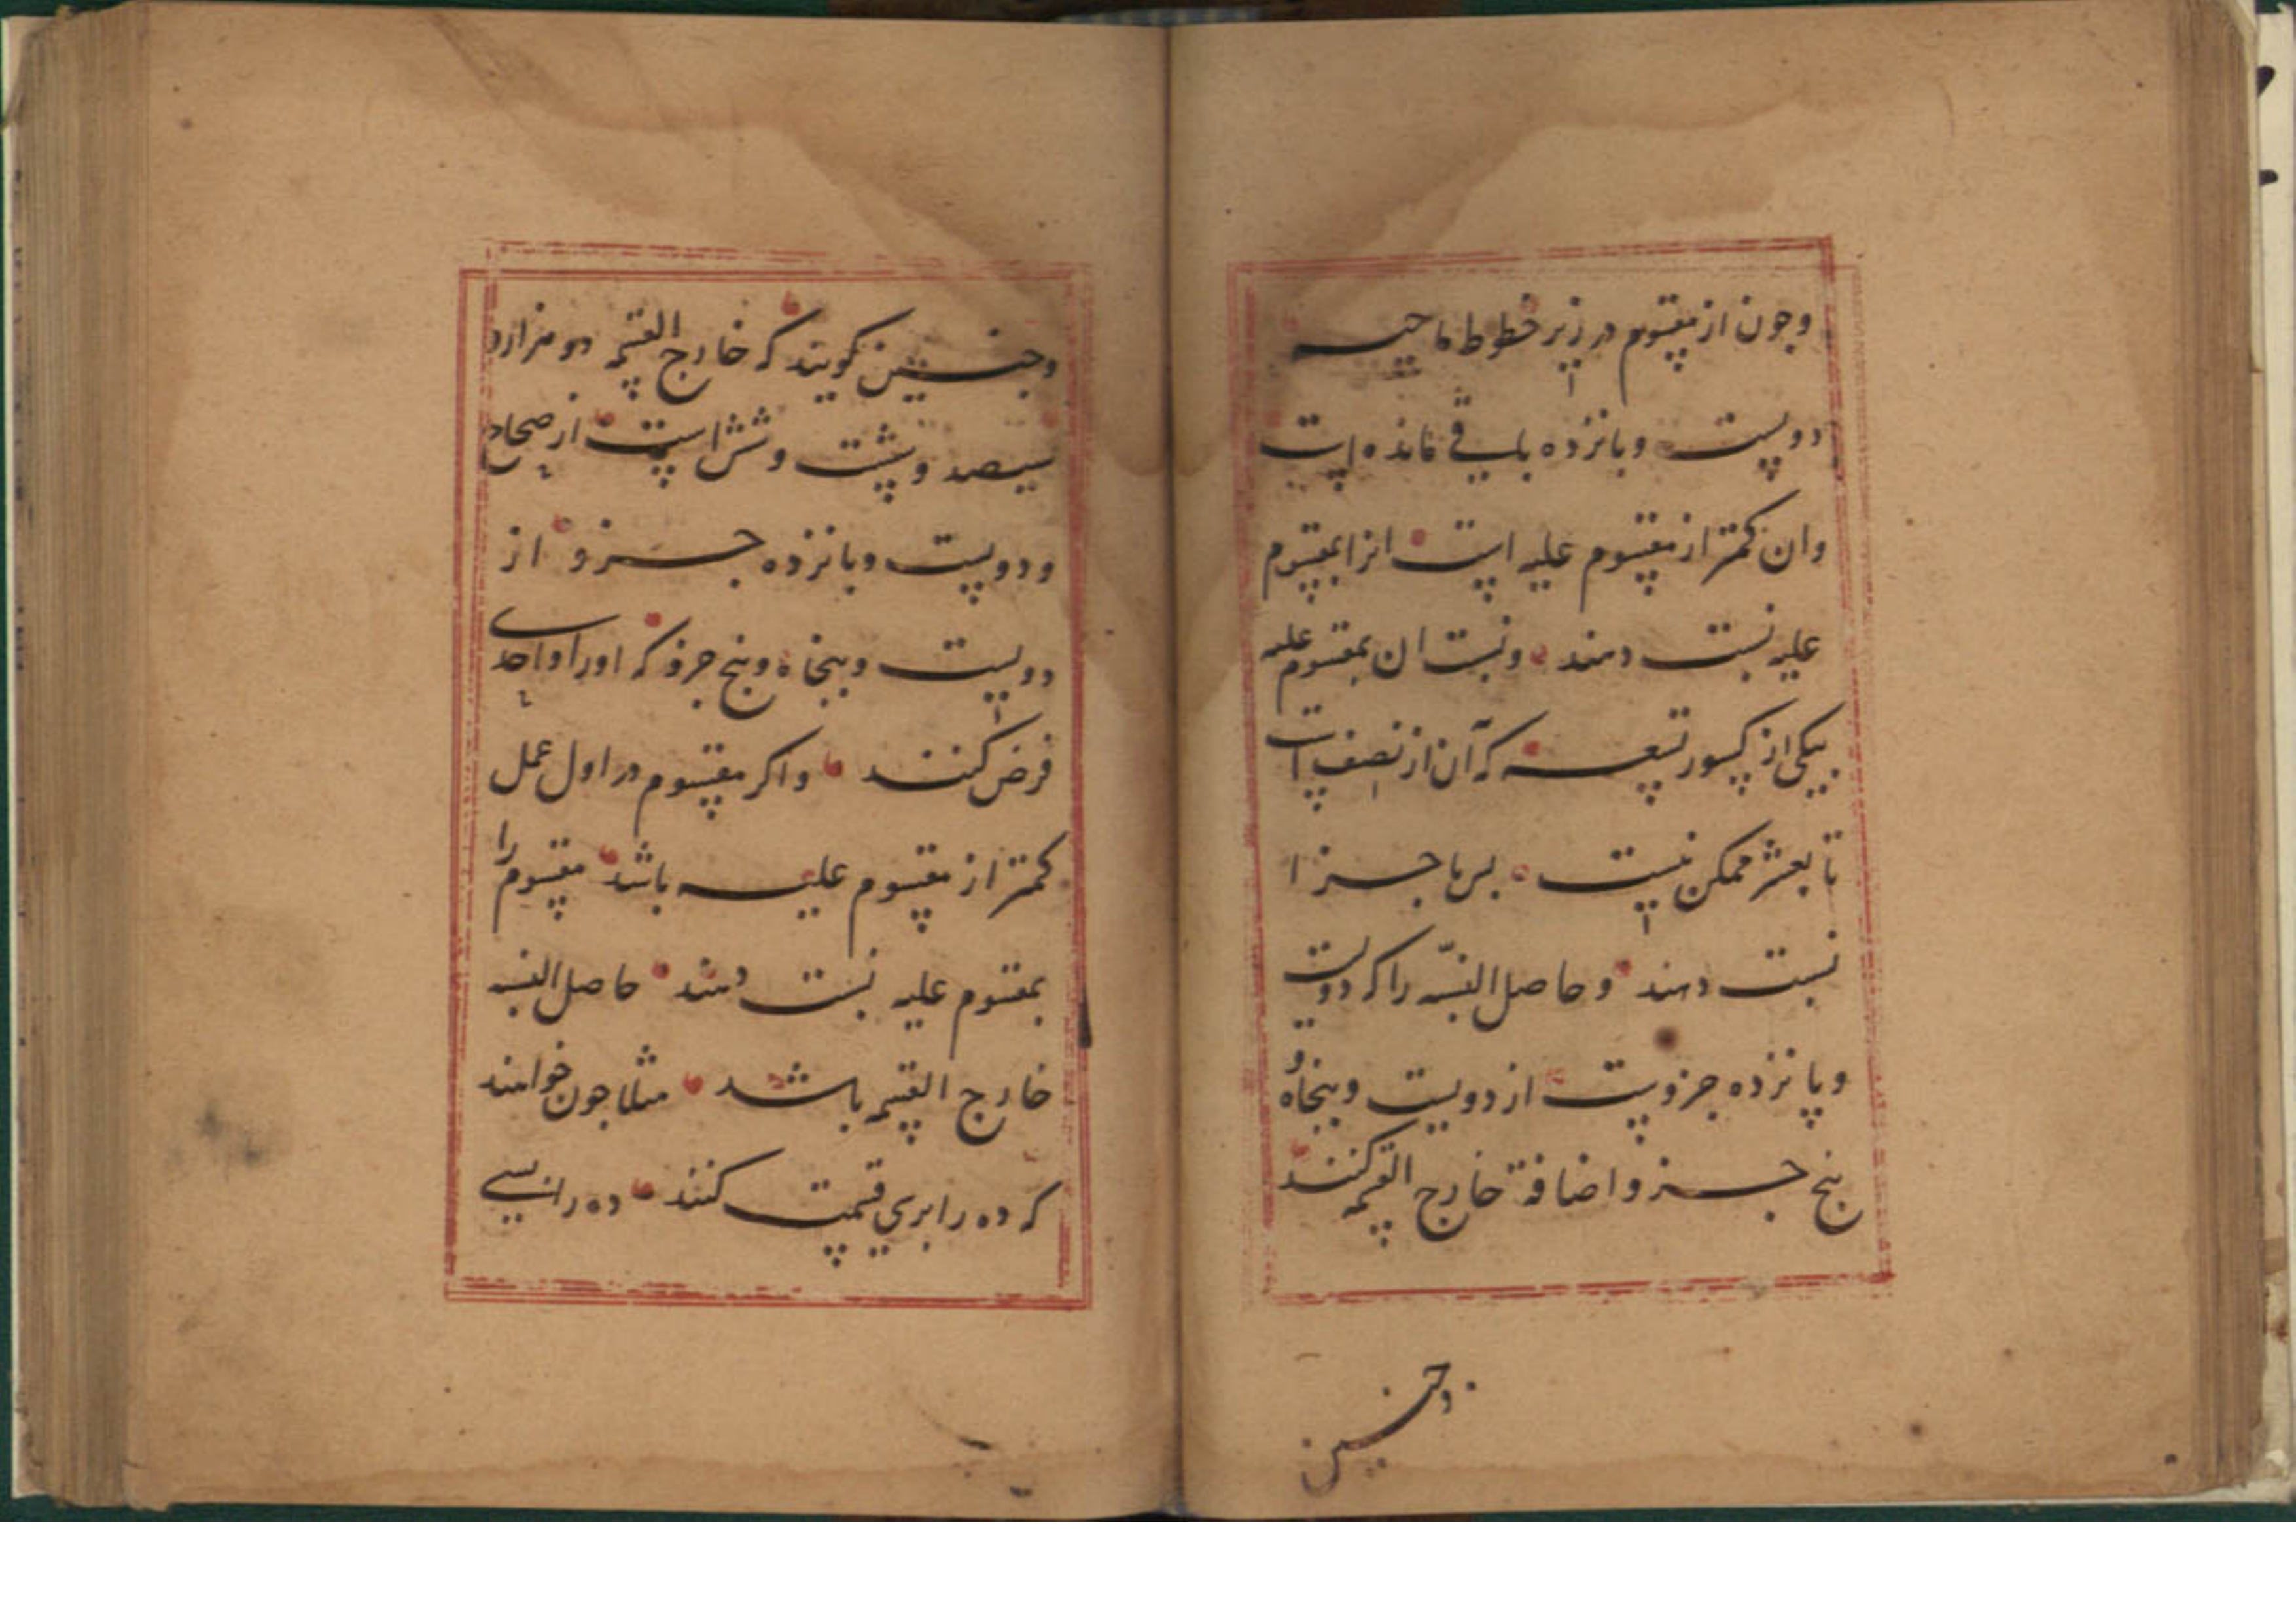 وجون از مقسوم در زیر خطوط ماحیه
دویست وبانزده باقی مانده است
وان کمتر از مقسوم علیه است انرا بمقسوم
علیه نسبت دهند ونسبت ان بمقسوم علیه
بیکی از کسور تسعه که آن از نصف است
تا بعشر ممکن نیست بس باجزا
نسبت دهند وحاصل النسبه را که دویست
وپانزده جزویست از دویست وپنجاه و
پنج جزو اضافهٔ خارج القسمه کنند
وجنین
وجنین کویند که خارج القسمه دو هزار و
سیصد وشت وشش است از صحاح
ودویست وبانزده جزو از
دویست وپنجاه وپنج جزو که اورا واحدی
فرض کنند واکر مقسوم در اول عمل
کمتر از مقسوم علیه باشد مقسوم را
بمقسوم علیه نسبت دهند حاصل النسبه
خارج القسمه باشد مثلا جون خواهند
که ده را بری قیمت کنند ده را نسبی